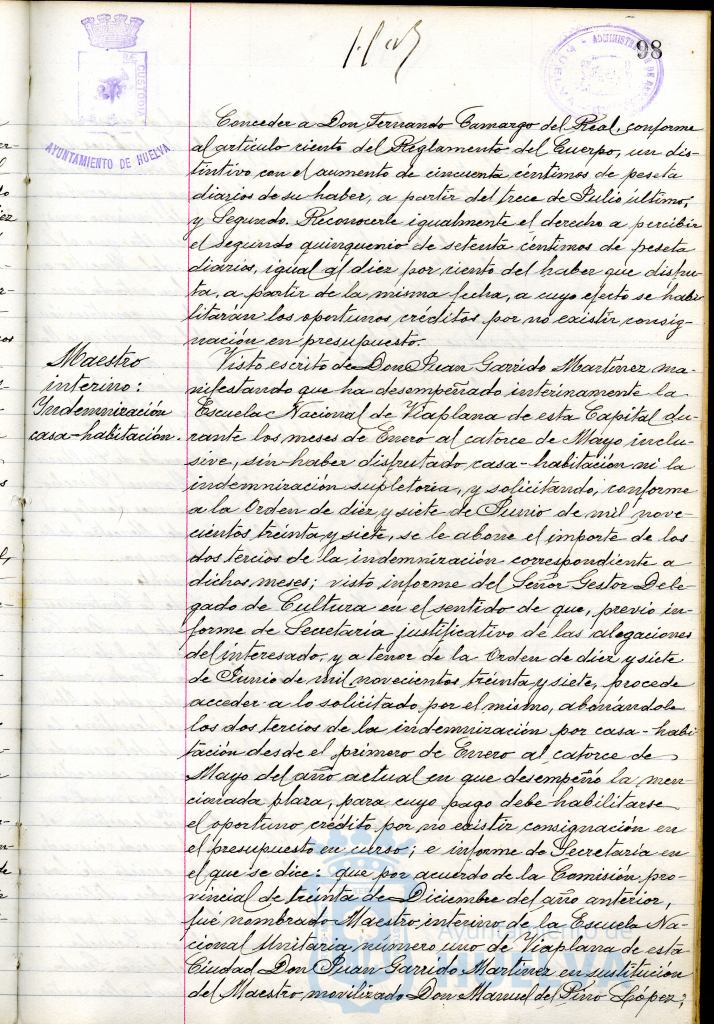 98
CUSTODIA
AYUNTAMIENTO DE HUELVA
Conceder a Don Fernando Camargo del Real, conforme
al artículo ciento del Reglamento del Cuerpo, un dis-
tintivo con el aumento de cincuenta céntimos de peseta
diarios de su haber, a partir del trece de Julio último;
y Segundo. Reconocerle igualmente el derecho a percibir
el segundo quinquenio de setenta céntimos de peseta
diarios, igual al diez por ciento del haber que disfru-
ta, a partir de la misma fecha, a cuyo efecto se habi-
litarán los oportunos créditos por no existir consig-
nación en presupuesto.
Maestro
interino:
Indemnización
casa-habitación.
Visto escrito de Don Juan Garrido Martínez ma-
nifestando que ha desempeñado interinamente la
Escuela Nacional de Viaplana de esta Capital du-
rante los meses de Enero al catorce de Mayo inclu-
sive, sin haber disfrutado casa-habitación ni la
indemnización supletoria, y solicitando, conforme
a la Orden de diez y siete de Junio de mil nove-
cientos treinta y siete, se le abone el importe de los
dos tercios de la indemnización correspondiente a
dichos meses; visto informe del Señor Gestor Dele-
gado de Cultura en el sentido de que, previo in-
forme de Secretaría justificativo de las alegaciones
del interesado, y a tenor de la Orden de diez y siete
de Junio de mil novecientos treinta y siete, procede
acceder a lo solicitado por el mismo, abonándole
los dos tercios de la indemnización por casa-habi-
tación desde el primero de Enero al catorce de
Mayo del año actual en que desempeñó la men-
cionada plaza, para cuyo pago debe habilitarse
el oportuno crédito por no existir consignación en
el presupuesto en curso; e informe de Secretaría en
el que se dice: que por acuerdo de la Comisión pro-
vincial de treinta de Diciembre del año anterior,
fué nombrado Maestro interino de la Escuela Na-
cional Unitaria número uno de Viaplana de esta
Ciudad Don Juan Garrido Martínez en sustitución
del Maestro movilizado Don Manuel del Pino López;
Ayuntamiento de
HUELVA